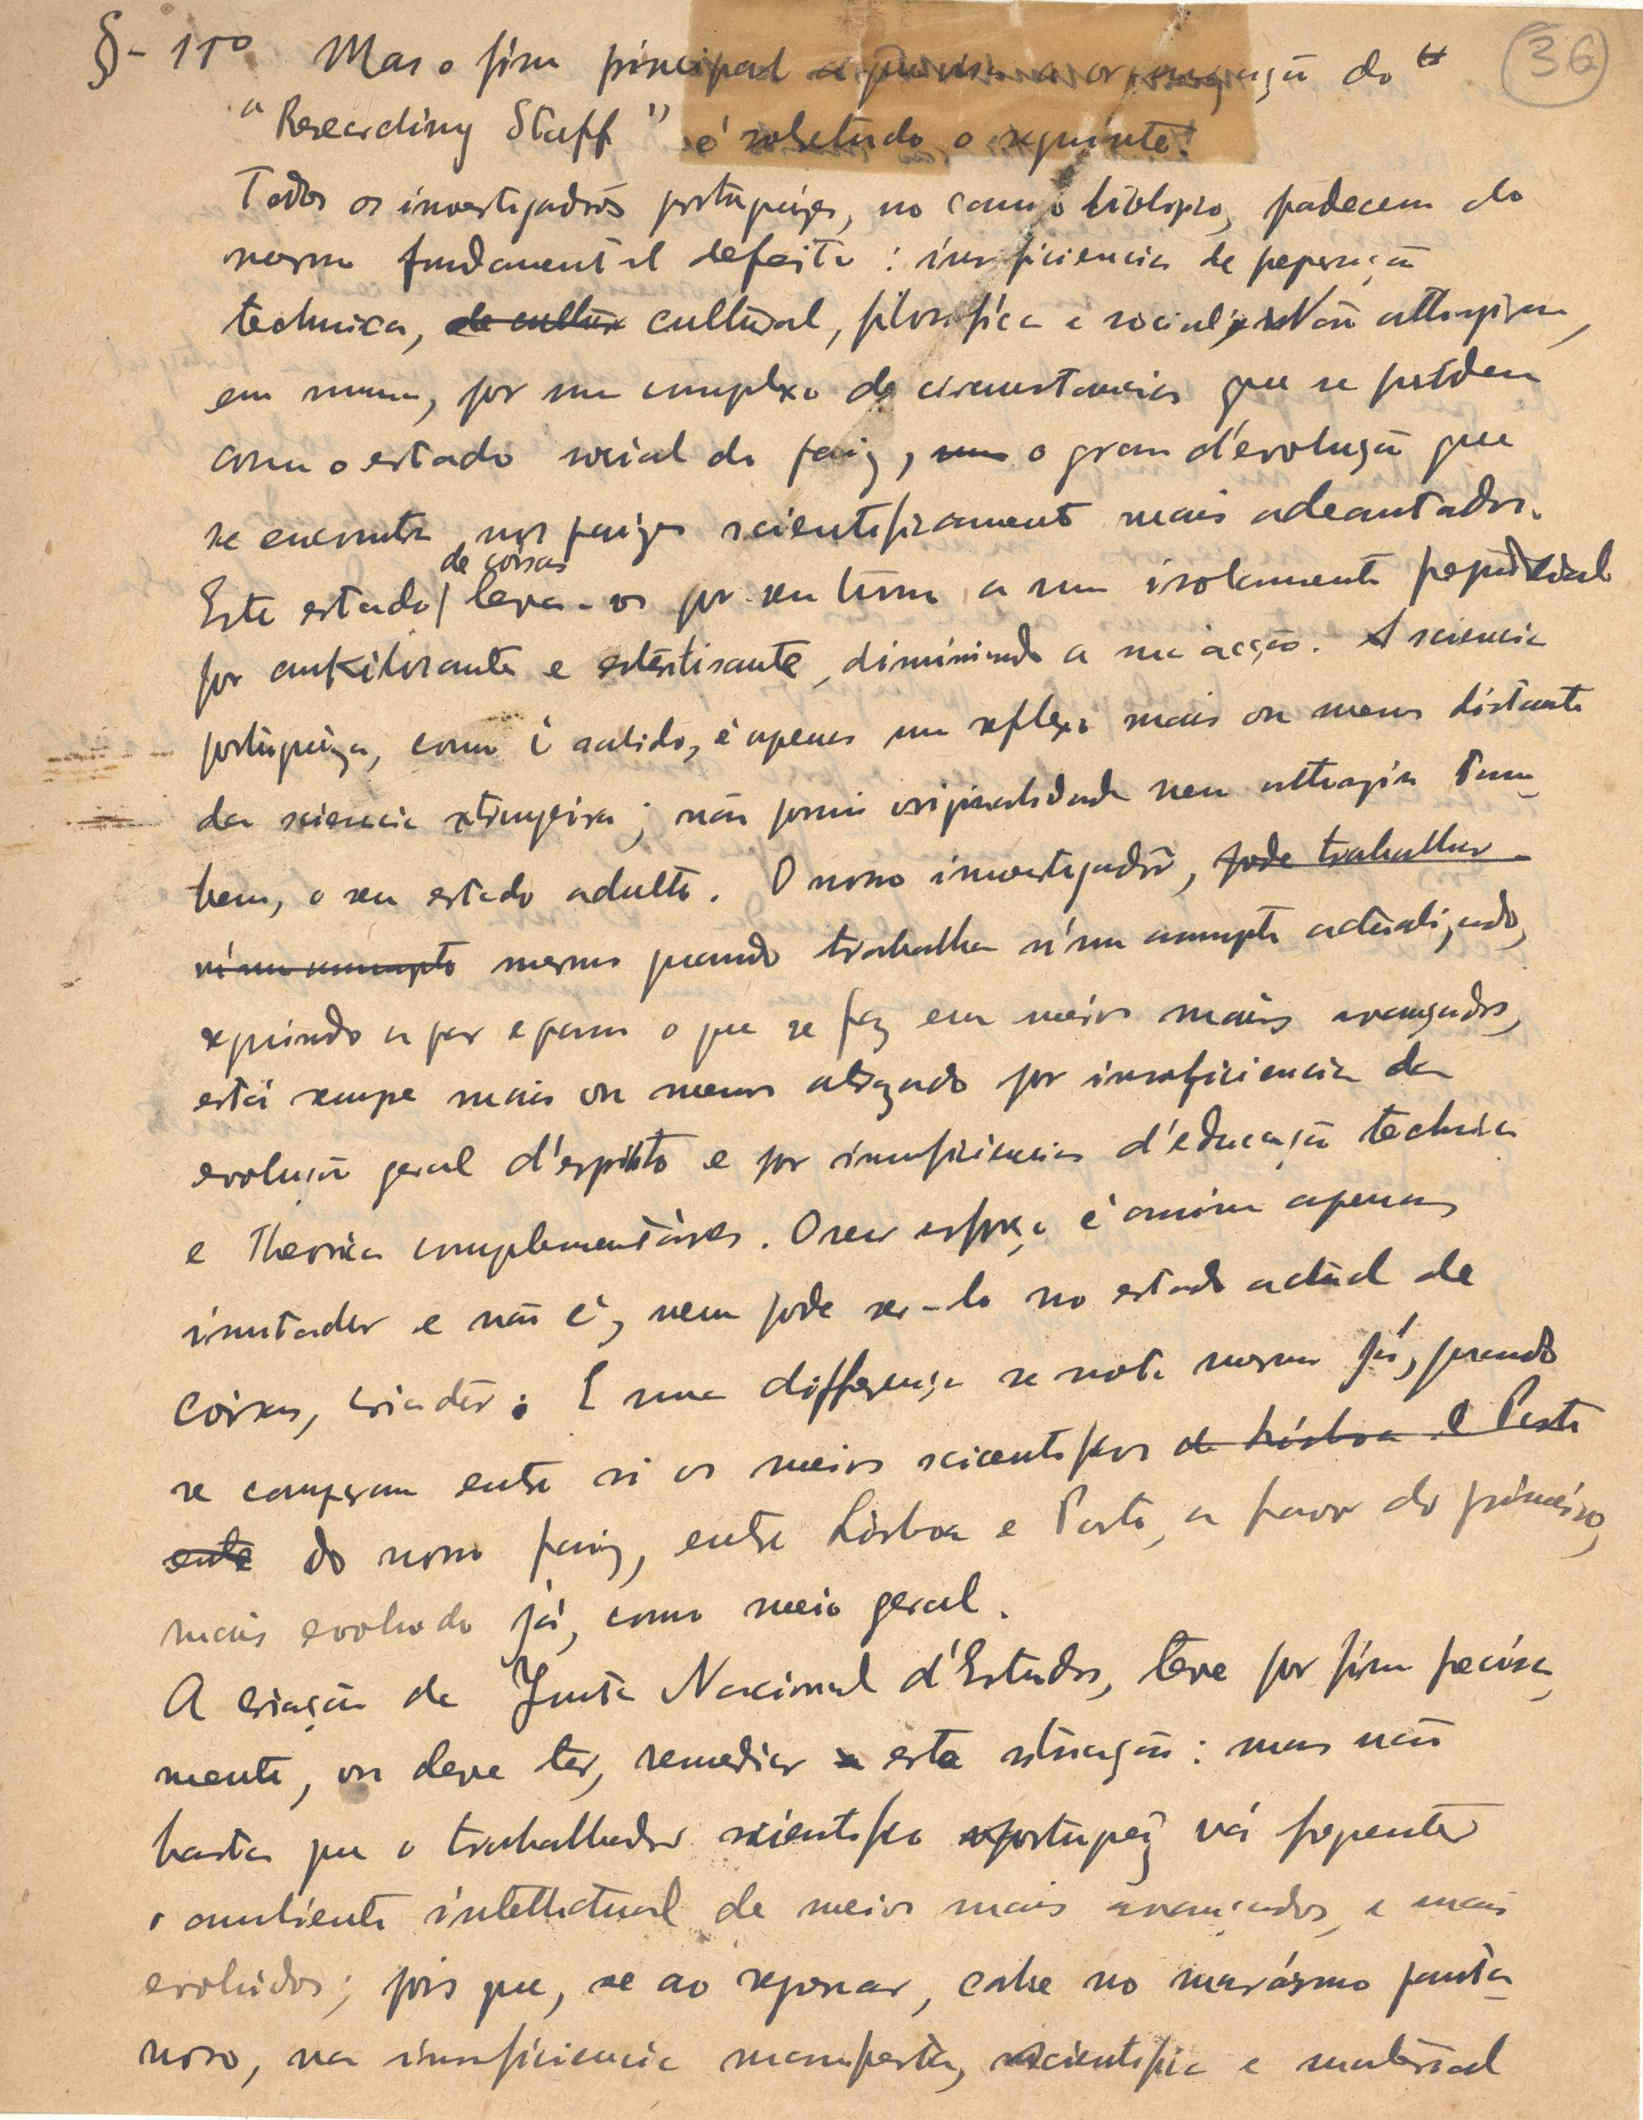 36
§- 11º Mas o fim principal a que visa a organização do
"Researching Staff" é sobretudo o seguinte:
Todos os investigadores portuguêzes, no campo biologico, padecem do
mesmo fundamental defeito: insuficiencia de preparação
technica, de cultura cultural, filosofica e social; Não attingiram,
em summa, por um complexo de circunstancias que se prendem
com o estado social do paiz, o grau d'evolução que
se encontra nos paizes scientificamente mais adeantados.
Este estado de coisas leva-os por seu turno a um isolamento prejudicial
por ankilosante e esterilisante, diminuindo a sua acção. A sciencia
portuguêza, como é sabido, é apenas um reflexo mais ou menos distante
da sciencia estrangeira; não possui originalidade nem attingiu tam-
bem, o seu estado adulto. O nosso investigador, pode trabalhar
n'um assumpto mesmo quando trabalha n'um assumpto actualizado,
seguindo a par e passo o que se faz em meios mais avançados,
está sempre mais ou menos atrazado por insuficiencia da
evolução geral d'espirito e por insuficiencias d'educação technica
e theorica complementares. O seu esforço é assim apenas
imitador e não é, nem pode ser-lo no estado actual de
coisas, criador. E uma differença se nota mesmo já, quando
se comparam entre si os meios scientificos de Lisboa e Porto
entre do nosso paiz, entre Lisboa e Porto, a favor do primeiro,
mais evoluido já, como meio geral.
A criação da Junta Nacional d'Estudos, teve por fim precisa-
mente, ou deve ter, remediar esta situação: mas não
basta que o trabalhador scientifico portuguêz vá frequentar
o ambiente intellectual de meios mais avançados e mais
evoluidos; pois que, se ao regressar, cahe no marásmo panta-
noso, na insuficiencia manifesta, scientifica e material